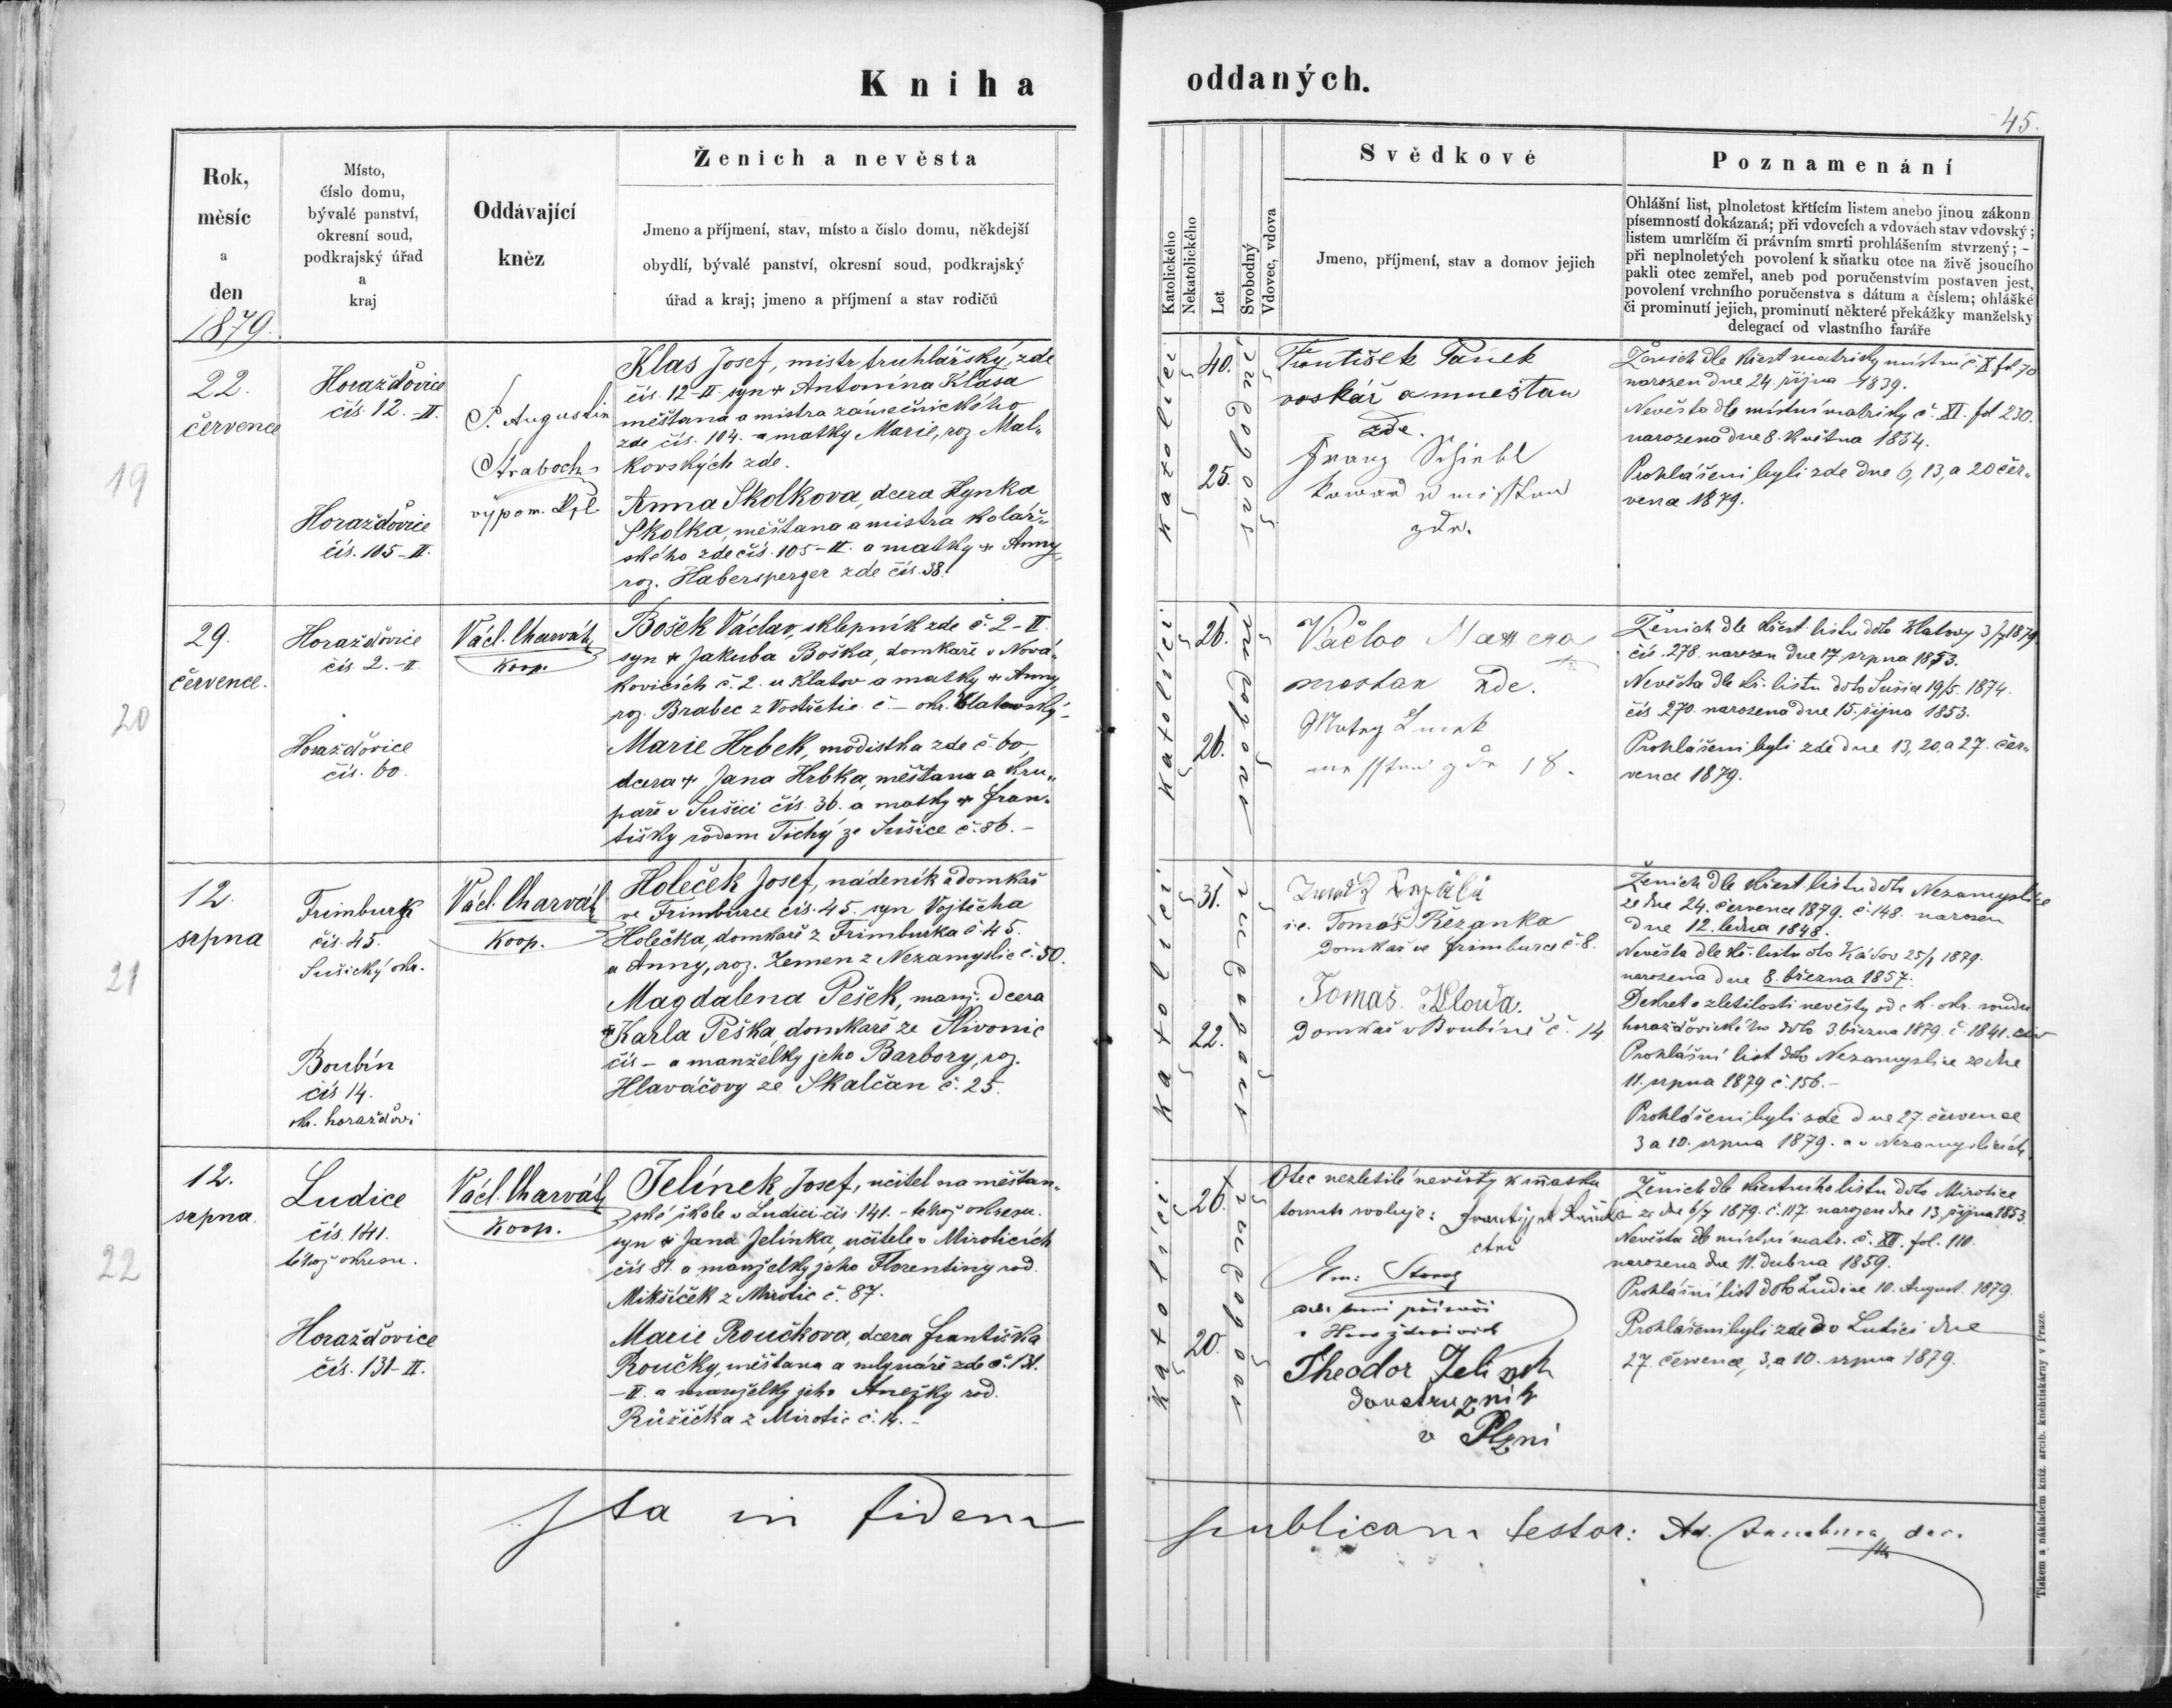 Kniha oddaných.
45.
Rok,
měsíc
a
den
1879.
Místo,
číslo domu,
bývalé panství,
okresní soud,
podkrajský úřad
a
kraj
Oddávající
kněz
Ženich a nevěsta
Jmeno a příjmení, stav, místo a číslo domu, někdejší
obydlí, bývalé panství, okresní soud, podkrajský
úřad a kraj; jmeno a příjmení a stav rodičů
Katolického
Nekatolického
Let
Svobodný
Vdovec, vdova
Svědkové
Jmeno, příjmení, stav a domov jejich
Poznamenání
Ohlášní list, plnoletost křtícím listem anebo jinou zákonn
písemností dokázaná; při vdovcích a vdovách stav vdovský;
listem umrlčím či právním smrti prohlášením stvrzený; -
při neplnoletých povolení k sňatku otce na živě jsoucího
pakli otec zemřel, aneb pod poručenstvím postaven jest,
povolení vrchního poručenstva s dátum a číslem; ohlášké
či prominutí jejich, prominutí některé překážky manželsky
delegací od vlastního faráře
19
22.
července
Horažďovice
čís. 12.-II.
Horažďovice
čís. 105-II.
P. Augustin
Straboch
výpom. Kpl.
Klas Josef, mistr truhlářský, zde
čís. 12-II. syn + Antonína Klasa
měštana a mistra zámečnického
zde čís. 104. a matky Marie, roz. Mal-
kovských zde.
Anna Skolkova, dcera Hynka
Skolka, měštana a mistra kolář-
ského zde čís. 105-II. a matky + Anny,
roz. Habersperger zde čís. 38.
Katolíci
40.
25.
svobodní
František Pánek
voskář a mneštan
zde.
Franz Schiebl
Ženich dle křest matriky místní č. X fol 70
narozen dne 24. října 1839.
Nevěsta dle místní matriky č. XI. fol 230.
narozena dne 8. května 1854.
Prohlášeni byli zde dne 6, 13, a 20 čer-
vena 1879.
20
29.
července.
Horažďovice
čís. 2.-II
Horažďovice
čís. 60.
Václ. Charvát,
Koop.
Bošek Václav, sklepník zde č. 2-II
syn + Jakuba Boška, domkaře v Nová-
kovicích č. 2. u Klatov a matky + Anny
roz. Brabec z Vostřetic č. – okr. Klatovský-
Marie Hrbek, modistka zde č. 60,
dcera + Jana Hrbka, měštana a kru-
paře v Sušici čís. 36. a matky + Fran-
tišky rodem Tichý ze Sušice č. 86. –
Katolíci
26.
26.
svobodní
Václav
mestan zde.
Ženich dle křest. listu ddo Klatovy 3/7 1879.
čís. 278. narozen dne 17. srpna 1853.
Nevěsta dle kř. listu ddo Sušice 19/5. 1874.
čís 270. narozena dne 15. října 1853.
Prohlášeni byli zde dne 13, 20, a 27. čer-
vence 1879.
21
12.
srpna
Frimburk
čís. 45.
Sušický okr.
Boubín
čís 14.
okr. horažďovi
Václ. Charvát,
Koop.
Holeček Josef, nádeník a domkař
ve Frimburce čís. 45. syn Vojtěcha
Holečka, domkaře z Frimburka č. 45.
a Anny, roz. Zemen z Nezamyslic č. 50.
Magdalena Pešek, manž. dcera
+ Karla Peška, domkaře ze Slivonic
čís – a manželky jeho Barbory, roz.
Hlaváčovy ze Skalčan č. 25.
Katolíci
31.
22.
svobodní
i.e. Tomáš Řezanka
domkař ve Frimburce č. 8.
Tomaš Klouda.
domkař v Boubíně č. 14
Ženich dle křest. listu ddo Nezamyslice
ze dne 24. července 1879. č. 148. narozen
dne 12. ledna 1848.
Nevěsta dle kř. listu
narozena dne 8. března 1857.
Dekret o zletilosti nevěsty od c. k. okr. soudu
horažďovického ddo 3. března 1879. č. 1841. civ
Prohlášní list ddo Nezamyslice ze dne
11. srpna 1879 č. 156. –
Prohlášeni byli zde dne 27. července
3 a 10. srpna 1879. a v Nezamyslicích
22
12.
srpna.
Ludice
čís. 141.
téhož okresu.
Horažďovice
čís. 131-II.
Václ. Charvát,
Koop.
Jelínek Josef, učitel na měštan-
ské škole v Ludici čís. 141. – téhož okresu.
syn + Jana Jelínka, učitele v Miroticích
čís 81. a manželky jeho Florentiny rod.
Mikšíček z Mirotic č. 87.
Marie Roučkova, dcera Františka
Roučky, měštana a mlynáře zde č. 131.
–II. a manželky jeho Anežky rod.
Růžička z Mirotic č. 14. –
Katolíci
26.
20.
svobodní
Otec nezletilé nevěsty k sňatku
tomuto svoluje: František Roučka
Theodor Jelinek
v Plzni
Ženich dle křestního listu ddo Mirotice
ze dne 6/7 1879. č. 117. narozen dne 13. října 1853.
Nevěsta dle místní matr. č. XII. fol. 110.
narozena dne 11. dubna 1859.
Prohlášní list ddo Ludice 10. August. 1879.
Prohlášeni byli zde a v Ludici dne
27. července, 3, a 10. srpna 1879.
Ita in fidem publicam testor:
Tiskem a nákladem kníž. arcib. knihtiskárny v Praze.